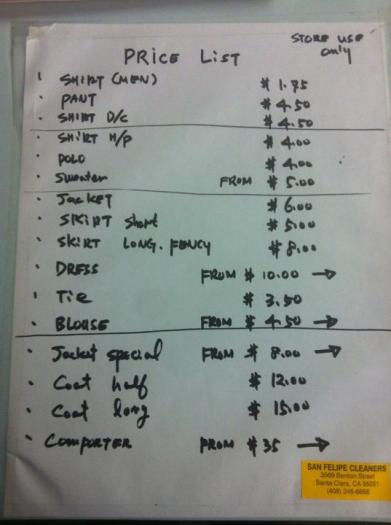 STORE USE
only
PRICE LIST
· SHIRT (MEN) $ 1.75
· PANT $ 4.50
· SHIRT D/C $ 4.50
· SHIRT H/P $ 4.00
· POLO $ 4.00
· Sweater FROM $ 5.00
· JACKET $ 6.00
· SKIRT Short $ 5.00
· SKIRT LONG. FENCY $ 8.00
· DRESS FROM $ 10.00 →
· Tie $ 3.50
· BLOUSE FROM $ 4.50 →
· Jacket special FROM $ 8.00 →
· Coat half $ 12.00
· Coat long $ 15.00
· COMPORTER FROM $ 35 →
SAN FELIPE CLEANERS
3569 Benton Street
Santa Clara, CA 95051
(408) 246-6668